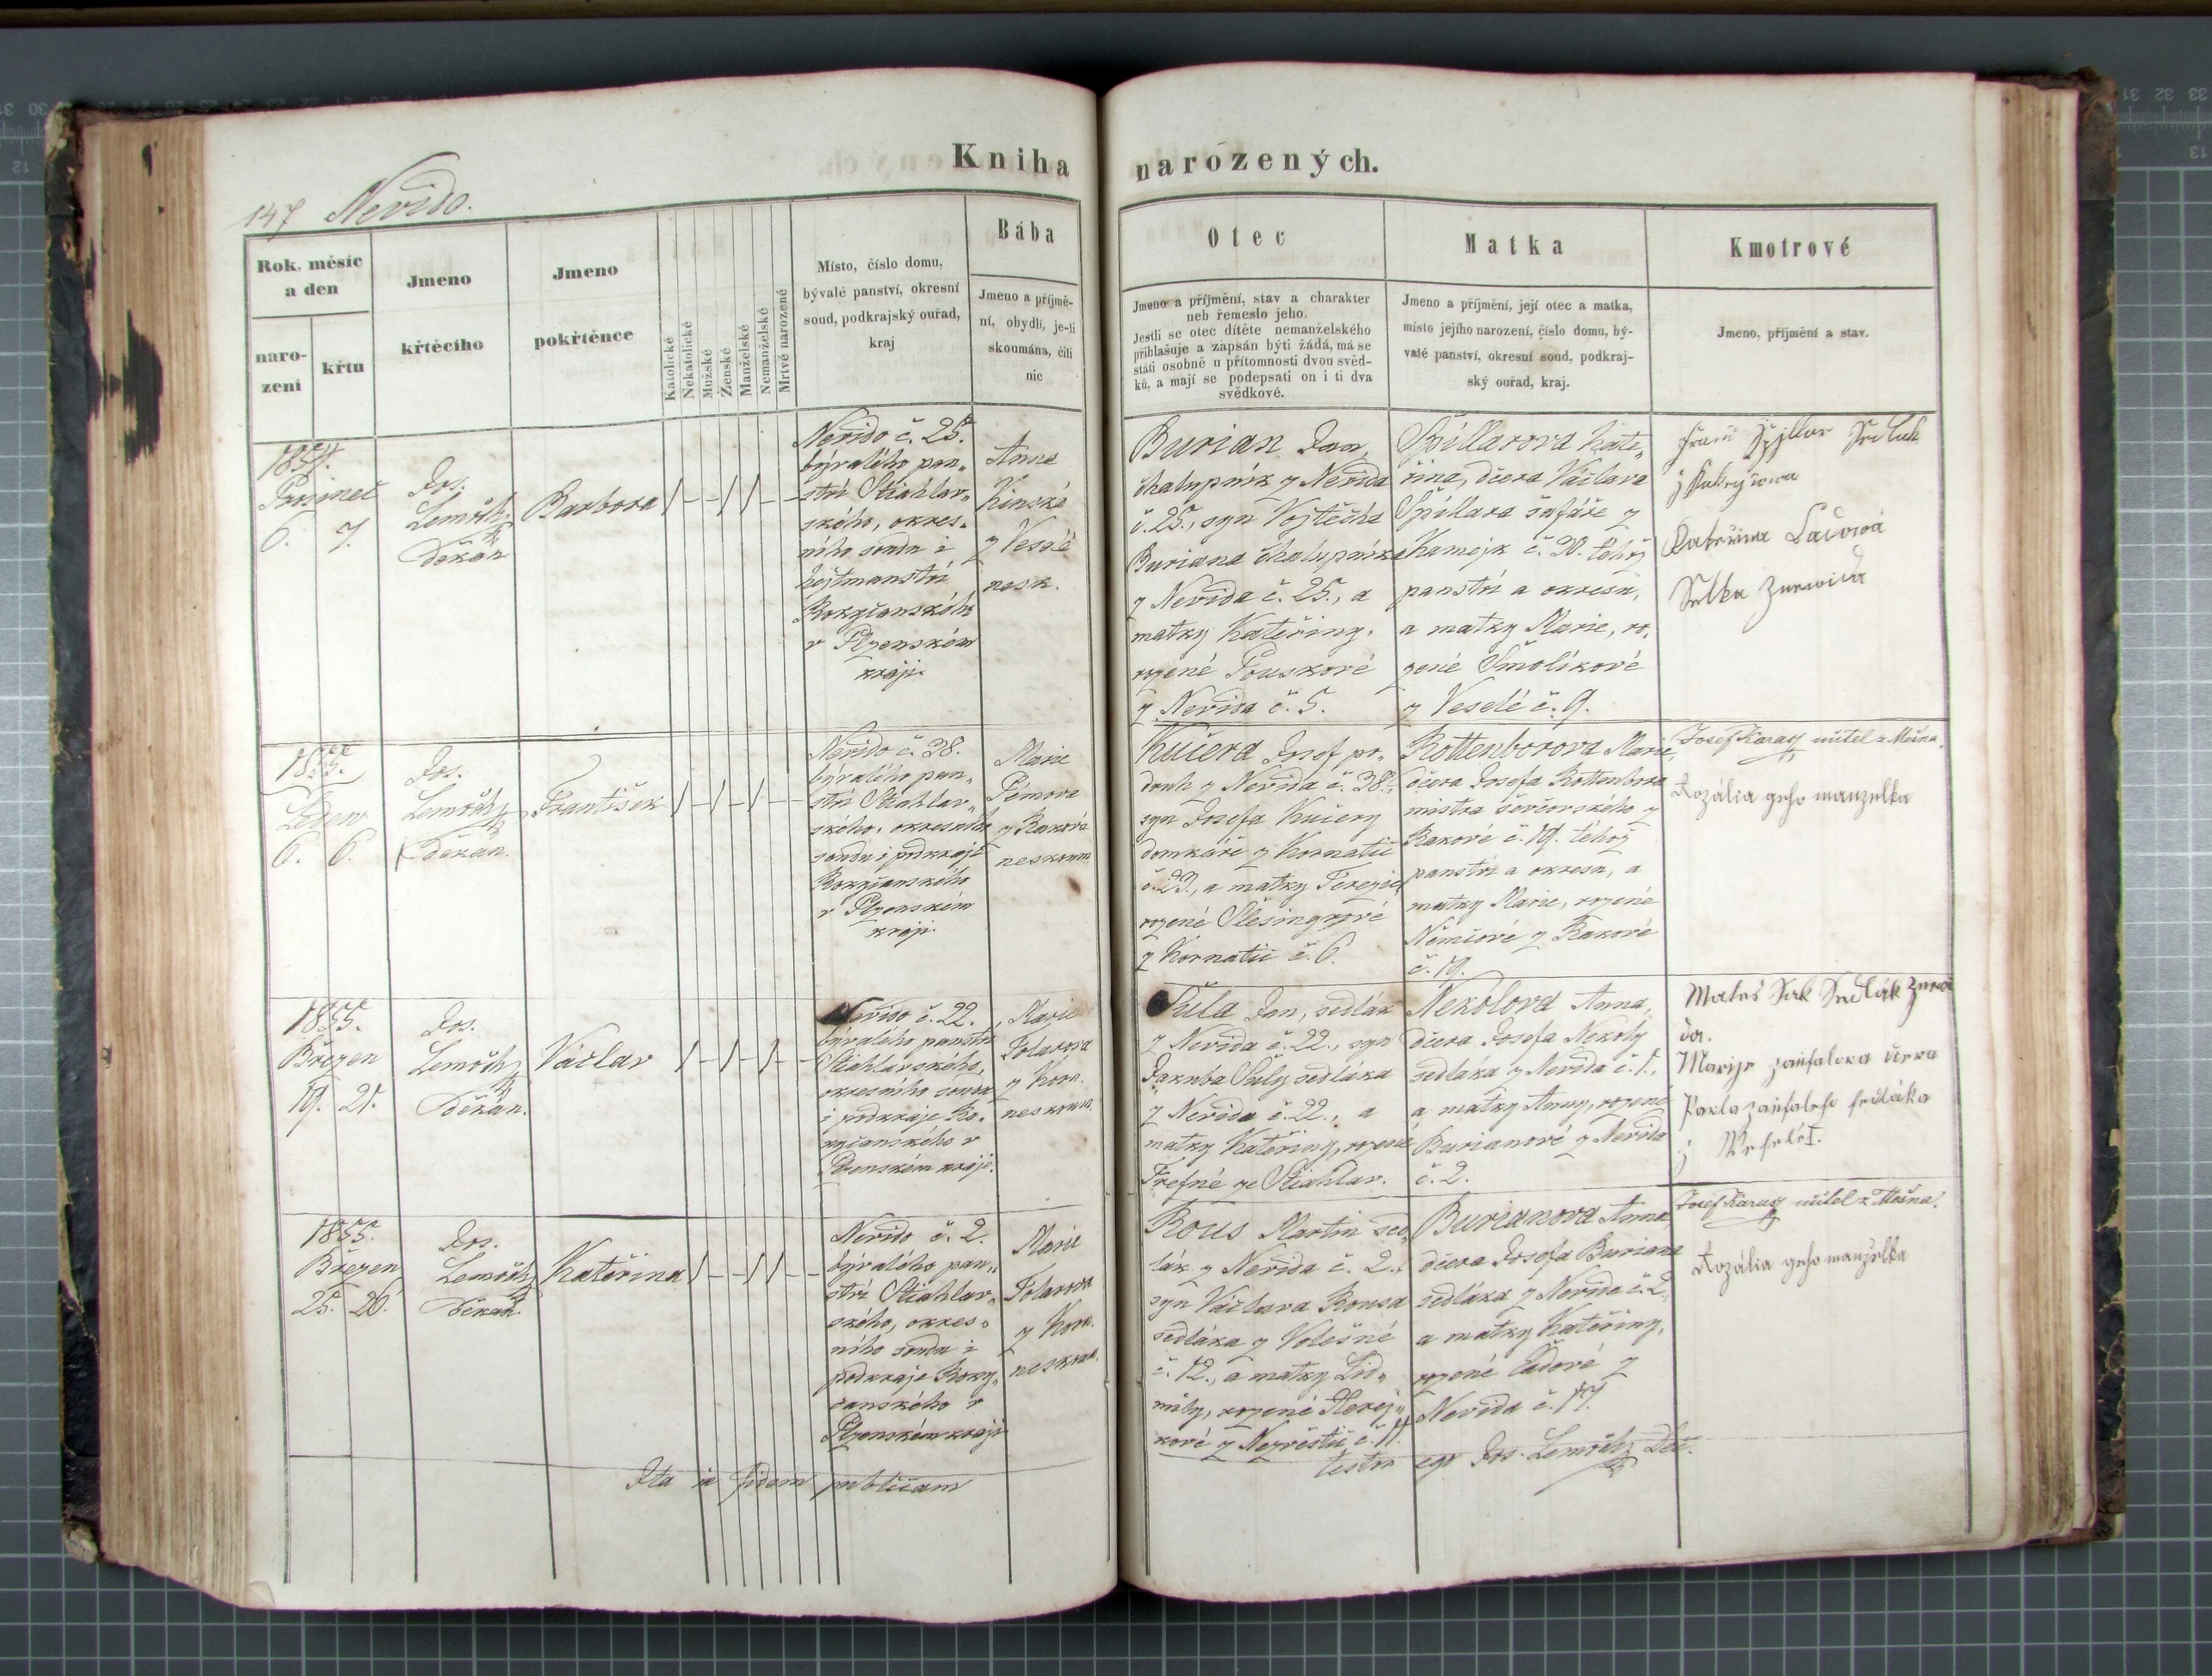 Kniha
narozených.
147 Nevido.
Rok, měsíc
a den
naro-
zení
křtu
Jmeno
křtěcího
Jmeno
pokřtěnce
Katolické
Nekatolické
Mužské
Ženské
Manželské
Nemanželské
Mrtvě narozené
Místo, číslo domu,
bývalé panství, okresní
soud, podkrajský ouřad,
kraj
Bába
Jmeno a příjmě-
ní, obydlí, je-li
skoumána, čili
nic
Otec
Jmeno a příjmění, stav a charakter
neb řemeslo jeho.
Jestli se otec dítěte nemanželského
přihlašuje a zapsán býti žádá, má se
státi osobně u přítomnosti dvou svěd-
ků, a mají se podepsati on i ti dva
svědkové.
Matka
Jmeno a příjmění, její otec a matka,
místo jejího narození, číslo domu, bý-
valé panství, okresní soud, podkraj-
ský ouřad, kraj.
Kmotrové
Jmeno, příjmění a stav.
1854.
Prosinec
6. 7.
Jos.
Děkan
Barbora
Nevido č. 25.
bývalého pan„
ství Štiahlav„
ského, okres„
ního soudu i
hejtmanství
Rokyčanského
v Plzenském
kráji.
Anna
Kinská
z Veselé
nesk.
Burian Jan,
chalupník z Nevida
č. 25., syn Vojtěcha
Buriana chalupníka
z Nevida č. 25., a
matky Kateřiny,
rozené Pouskové
z Nevida č. 5.
Špillarova Kate„
řina, dcera Václava
Špillara šafáře z
Kamejk č. 20. téhož
panství a okresu,
a matky Marie, ro„
zené Smolíkové
z Veselé č. 9.
Kateřina
1855.
Leden
6. 6.
Jos.
děkan.
František
Nevido č. 38.
bývalého pan„
ství Štiahlav„
ského, okresního
soudu i podkraje
Rokyčanského
v Plzenském
kráji.
Marie
z Rakové
neskoum.
Kučera Josef po„
druh z Nevida č. 38.,
syn Josefa Kučery
domkáře z Kornatic
č. 23., a matky Terezie,
rozené Šlesingrové
z Kornatic č. 6.
Rottenborova Marie,
dcera Josefa Rottenbora
mistra ševcovského z
Rakové č. 19. téhož
panství a okresu, a
matky Marie, rozené
Němcové z Rakové
č. 19.
Josef Karas učitel z Mešna.
Rozália geho manzelka
1855.
Březen
19. 21.
Jos.
Děkan.
Václav
Nevido č. 22.
bývalého panství
Štiahlavského,
okresního soudu
i podkraje Ro„
kyčanského v
Plzenském kráji.
Marie
z Korn.
neskoum.
Jan, sedlák
z Nevida č. 22., syn
Jakuba sedláka
z Nevida č. 22., a
matky Kateřiny, rozené
ze Štiahlav.
Nekolova Anna,
dcera Josefa Nekoly
sedláka z Nevida č. 1.,
a matky Anny, rozené
Burianové z Nevida
č. 2.
1855.
Březen
25. 26.
Jos.
Děkan.
Kateřina
Nevido č. 2.
bývalého pan„
ství Štiahlav„
ského, okres„
ního soudu i
podkraje Roky„
čanského v
Plzenském kráji
Marie
z Korn.
neskoum.
Rous Martin sed„
lák z Nevida č. 2.,
syn Václava Rousa
sedláka z Volešné
č. 12., a matky Lid„
mily, rozené
kové z Nezvěstic č. 11.
Burianova Anna,
dcera Josefa Buriana
sedláka z Nevida č. 2.
a matky Kateřiny,
rozené z
Nevida č. 17.
Josef Karas učitel z Mešna.
Rozália geho manželka
Ita in fidem publicam
testor ego Jos.